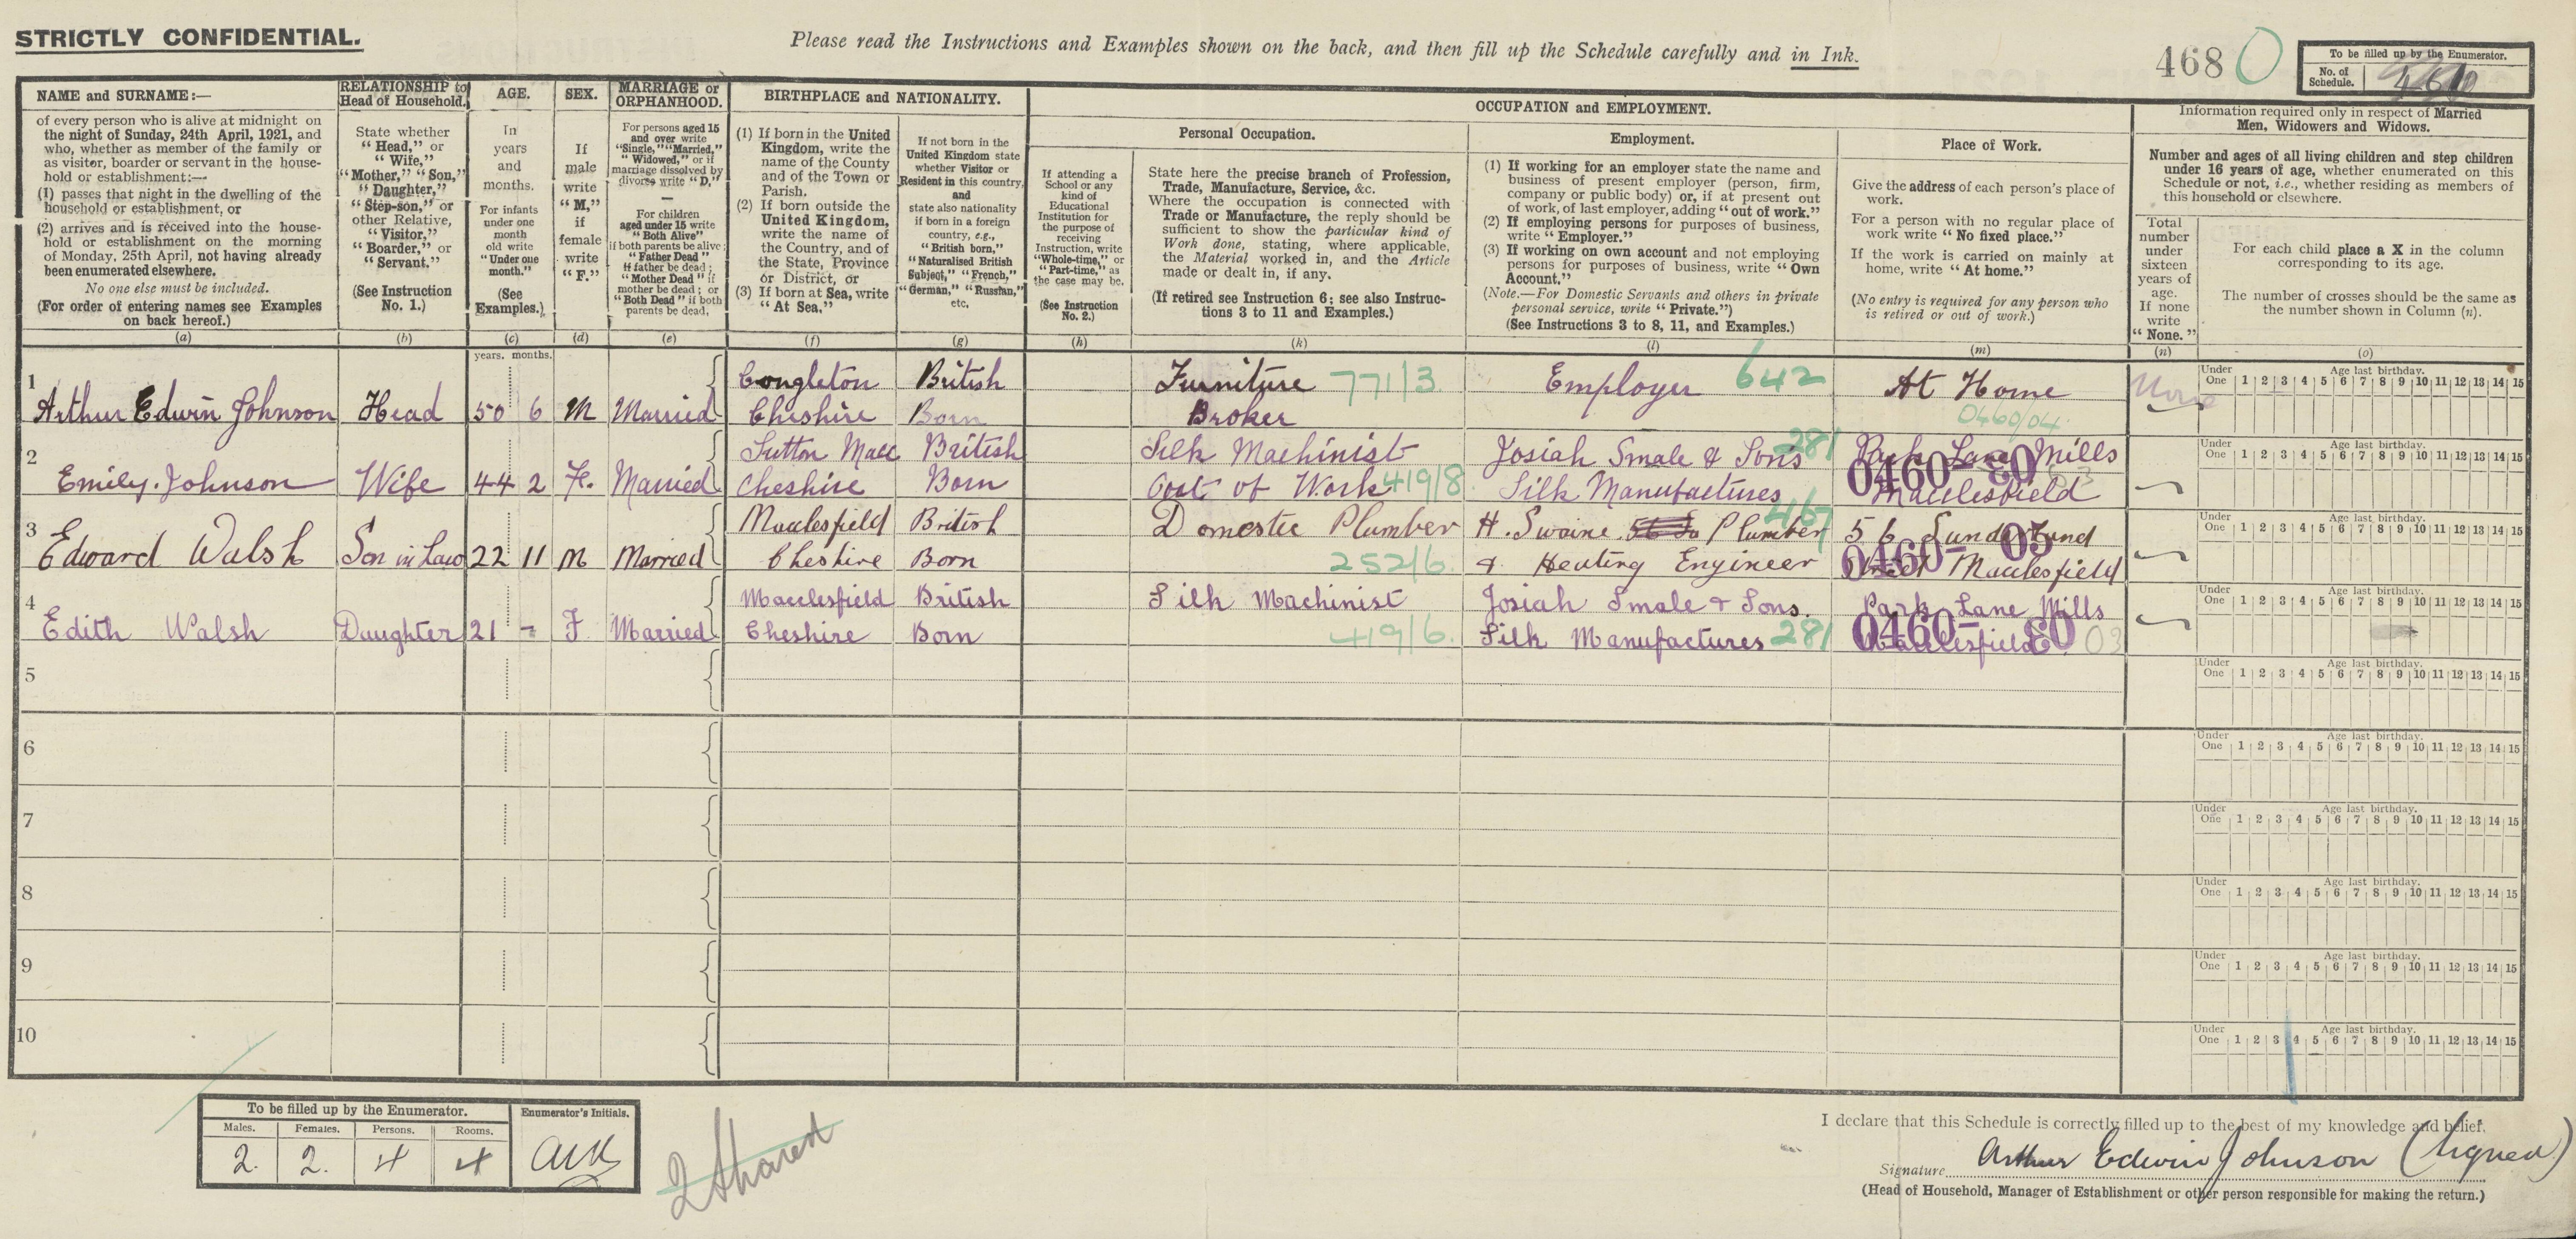 STRICTLY CONFIDENTIAL.
Please read the Instructions and Examples shown on the back, and then fill up the Schedule carefully and in Ink.
468 0
To be filled up by the Enumerator.
No. of Schedule.
NAME and SURNAME:—
of every person who is alive at midnight on
the night of Sunday, 24th April, 1921, and
who, whether as member of the family or
as visitor, boarder or servant in the house-
hold or establishment:—
(1) passes that night in the dwelling of the
household or establishment, or
(2) arrives and is received into the house-
hold or establishment on the morning
of Monday, 25th April, not having already
been enumerated elsewhere.
No one else must be included.
(For order of entering names see Examples
on back hereof.)
(a)
RELATIONSHIP to
Head of Household.
State whether
"Head," or
"Wife,"
"Mother," "Son,"
"Daughter,"
"Step-son," or
other Relative,
"Visitor,"
"Boarder," or
"Servant."
(See Instruction
No. 1.)
(b)
AGE.
In
years
and
months.
For infants
under one
month
old write
"Under one
month."
(See
Examples.)
(c)
SEX.
If
male
write
"M,"
if
female
write
"F."
(d)
MARRIAGE or
ORPHANHOOD.
For persons aged 15
and over write
"Single," "Married,"
"Widowed," or if
marriage dissolved by
divorce write "D."
For children
aged under 15 write
"Both Alive"
if both parents be alive;
"Father Dead"
if father be dead;
"Mother Dead" if
mother be dead; or
"Both Dead" if both
parents be dead.
(e)
BIRTHPLACE and NATIONALITY.
(1) If born in the United
Kingdom, write the
name of the County
and of the Town or
Parish.
(2) If born outside the
United Kingdom,
write the name of
the Country, and of
the State, Province
or District, or
(3) If born at Sea, write
"At Sea."
(f)
If not born in the
United Kingdom state
whether Visitor or
Resident in this country,
and
state also nationality
if born in a foreign
country, e.g.,
"British born,"
"Naturalised British
Subject," "French,"
"German," "Russian,"
etc.
(g)
OCCUPATION and EMPLOYMENT.
Personal Occupation.
If attending a
School or any
kind of
Educational
Institution for
the purpose of
receiving
Instruction, write
"Whole-time," or
"Part-time," as
the case may be.
(See Instruction
No. 2.)
(h)
State here the precise branch of Profession,
Trade, Manufacture, Service, &c.
Where the occupation is connected with
Trade or Manufacture, the reply should be
sufficient to show the particular kind of
Work done, stating, where applicable,
the Material worked in, and the Article
made or dealt in, if any.
(If retired see Instruction 6; see also Instruc-
tions 3 to 11 and Examples.)
(k)
Employment.
(1) If working for an employer state the name and
business of present employer (person, firm,
company or public body) or, if at present out
of work, of last employer, adding "out of work."
(2) If employing persons for purposes of business,
write "Employer."
(3) If working on own account and not employing
persons for purposes of business, write "Own
Account."
(Note.—For Domestic Servants and others in private
personal service, write "Private.")
(See Instructions 3 to 8, 11, and Examples.)
(l)
Place of Work.
Give the address of each person's place of
work.
For a person with no regular place of
work write "No fixed place."
If the work is carried on mainly at
home, write "At home."
(No entry is required for any person who
is retired or out of work.)
(m)
Information required only in respect of Married
Men, Widowers and Widows.
Number and ages of all living children and step children
under 16 years of age, whether enumerated on this
Schedule or not, i.e., whether residing as members of
this household or elsewhere.
Total
number
under
sixteen
years of
age.
If none
write
"None."
(n)
For each child place a X in the column
corresponding to its age.
The number of crosses should be the same as
the number shown in Column (n).
(o)
years. months.
1 Arthur Edwin Johnson Head 50 6 M Married Congleton Cheshire British Born Furniture Broker 771/3 Employer 642 At Home 0460/04 None
2 Emily. Johnson Wife 44 2 F. Married Sutton Macc Cheshire British Born Silk Machinist Out of Work 419/8 Josiah Smale & Sons Silk Manufactures 281 Park Lane Mills Macclesfield 0460-03
3 Edward Walsh Son in Law 22 11 M Married Macclesfield Cheshire British Born Domestic Plumber 252/6 H. Swaine Plumber & Heating Engineer 467 56 Sunderland Street Macclesfield 0460-03
4 Edith Walsh Daughter 21 - F Married Macclesfield Cheshire British Born Silk Machinist 419/6 Josiah Smale & Sons. Silk Manufactures 281 Park Lane Mills Macclesfield 0460-03 03
5
6
7
8
9
10
Under One Age last birthday. 1 2 3 4 5 6 7 8 9 10 11 12 13 14 15
Under One Age last birthday. 1 2 3 4 5 6 7 8 9 10 11 12 13 14 15
Under One Age last birthday. 1 2 3 4 5 6 7 8 9 10 11 12 13 14 15
Under One Age last birthday. 1 2 3 4 5 6 7 8 9 10 11 12 13 14 15
Under One Age last birthday. 1 2 3 4 5 6 7 8 9 10 11 12 13 14 15
Under One Age last birthday. 1 2 3 4 5 6 7 8 9 10 11 12 13 14 15
Under One Age last birthday. 1 2 3 4 5 6 7 8 9 10 11 12 13 14 15
Under One Age last birthday. 1 2 3 4 5 6 7 8 9 10 11 12 13 14 15
Under One Age last birthday. 1 2 3 4 5 6 7 8 9 10 11 12 13 14 15
Under One Age last birthday. 1 2 3 4 5 6 7 8 9 10 11 12 13 14 15
To be filled up by the Enumerator.
Enumerator's Initials.
Males. Females. Persons. Rooms.
2. 2. 4 4
2 Shared
I declare that this Schedule is correctly filled up to the best of my knowledge and belief.
Signature Arthur Edwin Johnson (Signed)
(Head of Household, Manager of Establishment or other person responsible for making the return.)